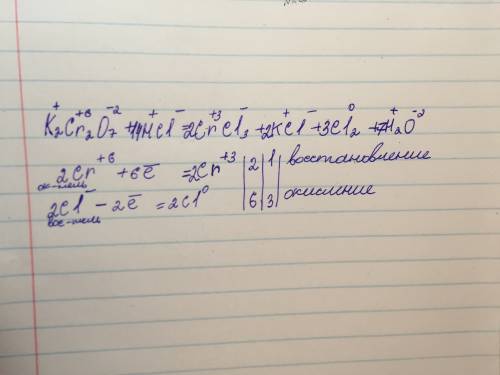 K₂⁺Cr₂⁺⁶O₇⁻² + 14H⁺Cl⁻ = 2Cr⁺³Cl₃⁻ + 2K⁺Cl⁻ + 3Cl₂⁰ + 7H₂⁺O⁻²
2Cr⁺⁶ + 6ē = 2Cr⁺³ | 2 | 1 | восстановление
ок-тель
2Cl⁻ - 2ē = 2Cl⁰ | 6 | 3 | окисление
вос-тель